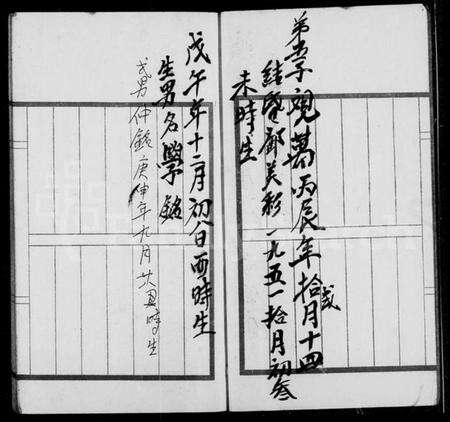 弟五子観萬丙辰年拾弍月十四
未時生
結婚鄺美彩一九五一拾月初叁
戊午年十二月初八日酉時生
生男名學銘
弍男仲銘庚申年九月廿四丑時生